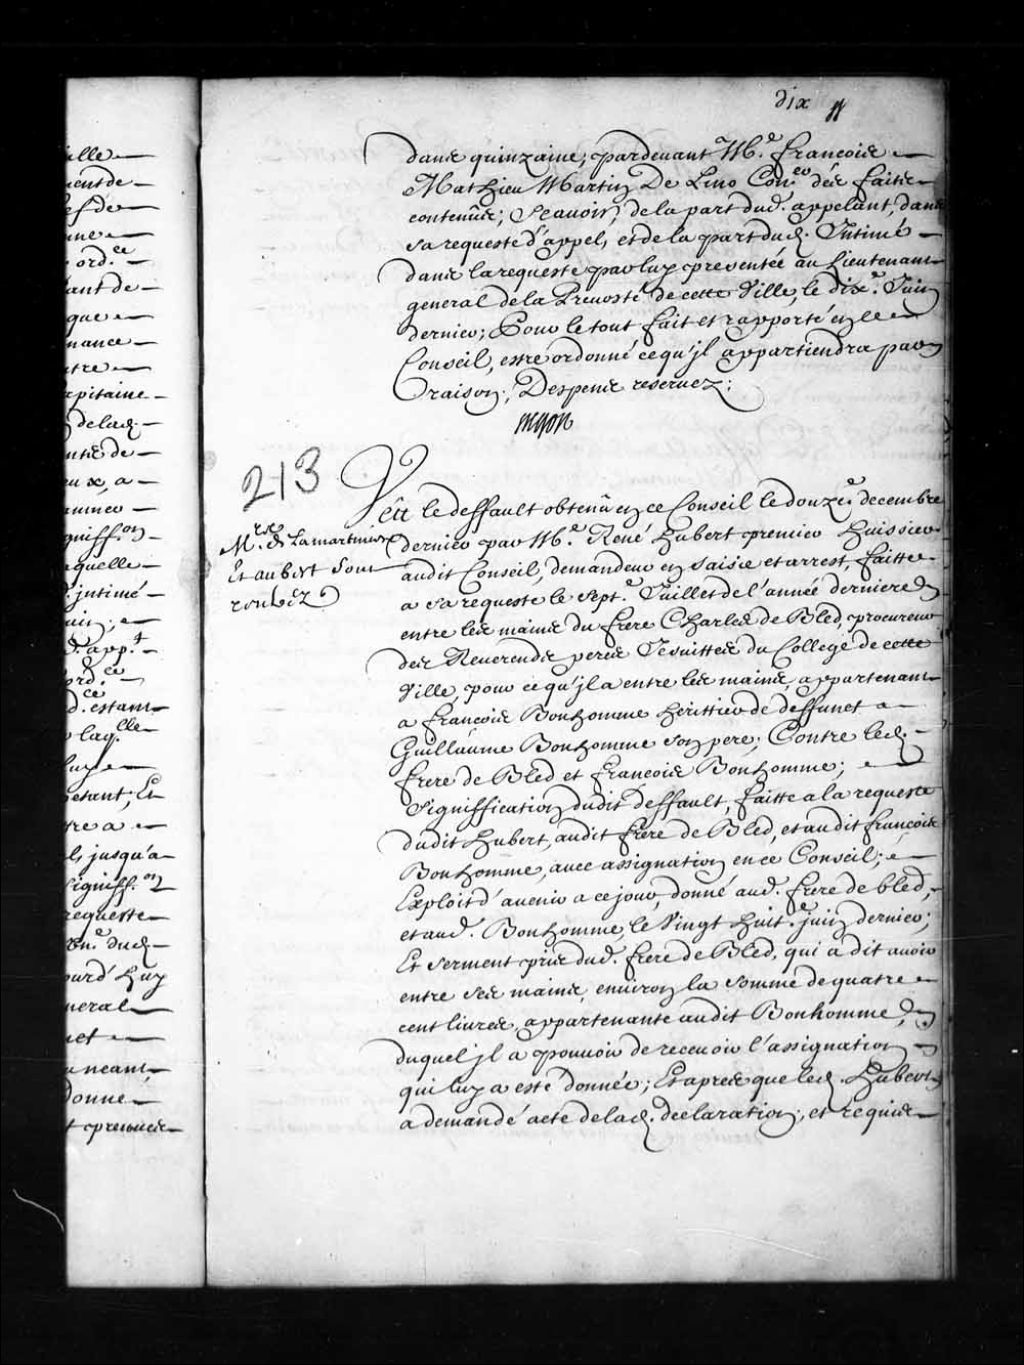 elle
ent de
ef de
une
ord.ce
ant de
que
nance
tre
apitaine
delad.
ntié de
eux, a
aminer
gniff.on
quelle
jntimé
uin;
d. app.t
ord.ce
d.ce estant
laq.lle
luy
estant; Et
tre a
jusqu'a
signiff.on
requeste
Con.er dud.
ourd'huy
neral
et
neant
donné
t prononcé
dix
dans quinzaine, pardevant M.e Francois
Mathieu Martin De Lino Con.er des faits
contenus; Scavoir, de la part dud. appelant, dans
sa requeste d'appel, et de la part dud. Intimé
dans la requeste par luy presentée au Lieutenant
general de la Prevosté de cette Ville, le dix.e Juin
dernier; Pour le tout fait et rapporté en ce
Conseil, estre ordonné ce qu'jl appartiendra par
raison; Despens reservez;
Begon
213
Mrs de Lamartiniere
Et aubert sont
rentréz
Veû le deffault obtenû en ce Conseil le douze.e decembre
dernier par M.e René Hubert premier Huissier
audit Conseil, demandeur en saisie et arrest, faitte
a sa requeste le sept.e Juillet de l'année derniere
entre les mains du frere Charles de Bled, procureur
des Reverends peres Jesuittes du College de cette
Ville, pour ce qu'jl a entre les mains, appartenant
a francois Bonhomme heritier de deffunct
Guillaume Bonhomme son pere; Contre led.
frere de Bled et francois Bonhomme;
Signiffication dudit deffault, faitte a la requeste
dudit Hubert, audit frere de Bled, et audit francois
Bonhomme, avec assignation en ce Conseil;
Exploit d'avenir a ce jour, donné aud. frere de bled,
et aud. Bonhomme, le vingt huit.e juin dernier;
Et serment pris dud. frere de Bled, qui a dit avoir
entre ses mains, environ la somme de quatre
cent livres, appartenante audit Bonhomme,
duquel jl a pouvoir de recevoir l'assignation
qui luy a esté donnée; Et apres que led. Hubert
a demandé acte de lad. declaration, et requis